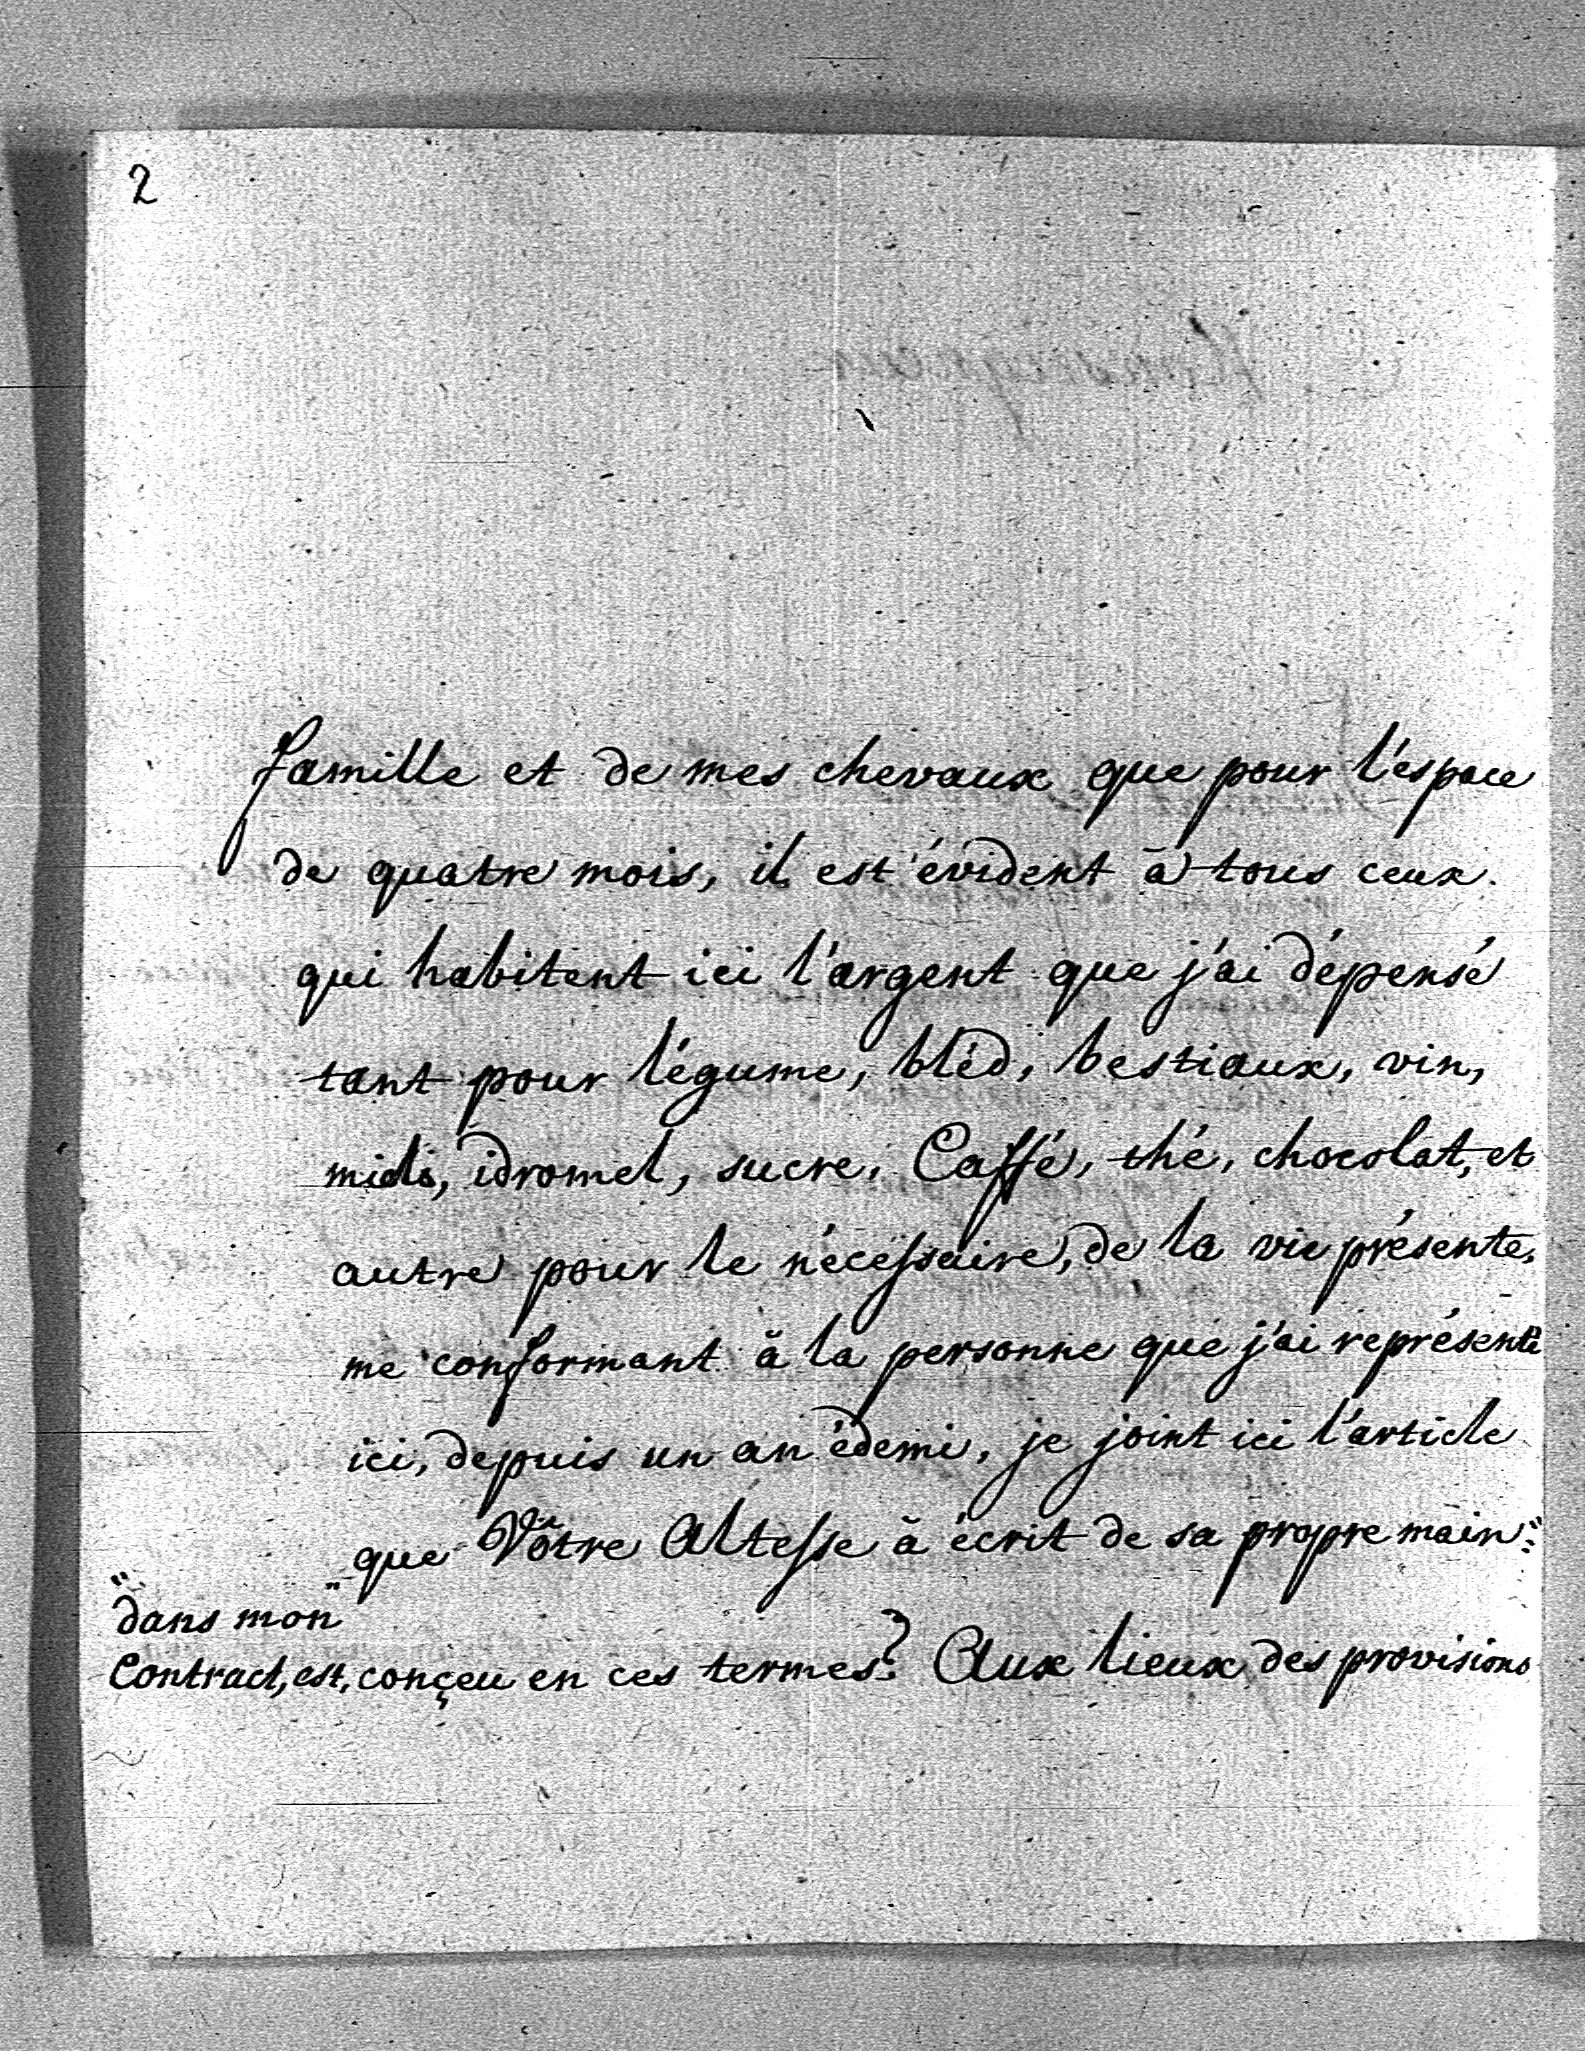 2
famille et de mes chevaux que pour l'éspace
de quatre mois, il est évident à tous ceux.
qui habitent ici l'argent que j'ai dépensé
tant pour légume, bléd, bestiaux, vin,
idromel, sucre, Caffé, thé, chocolat, et
autre pour le nécessaire, de la vie présente,
me conformant à la personne que j'ai représenté
ici, depuis un an édemi, je joint ici l'article
que Vôtre Altesse à écrit de sa propre main "
" dans mon "
Contract, est, conçeu en ces termes? Aux lieux des provisions